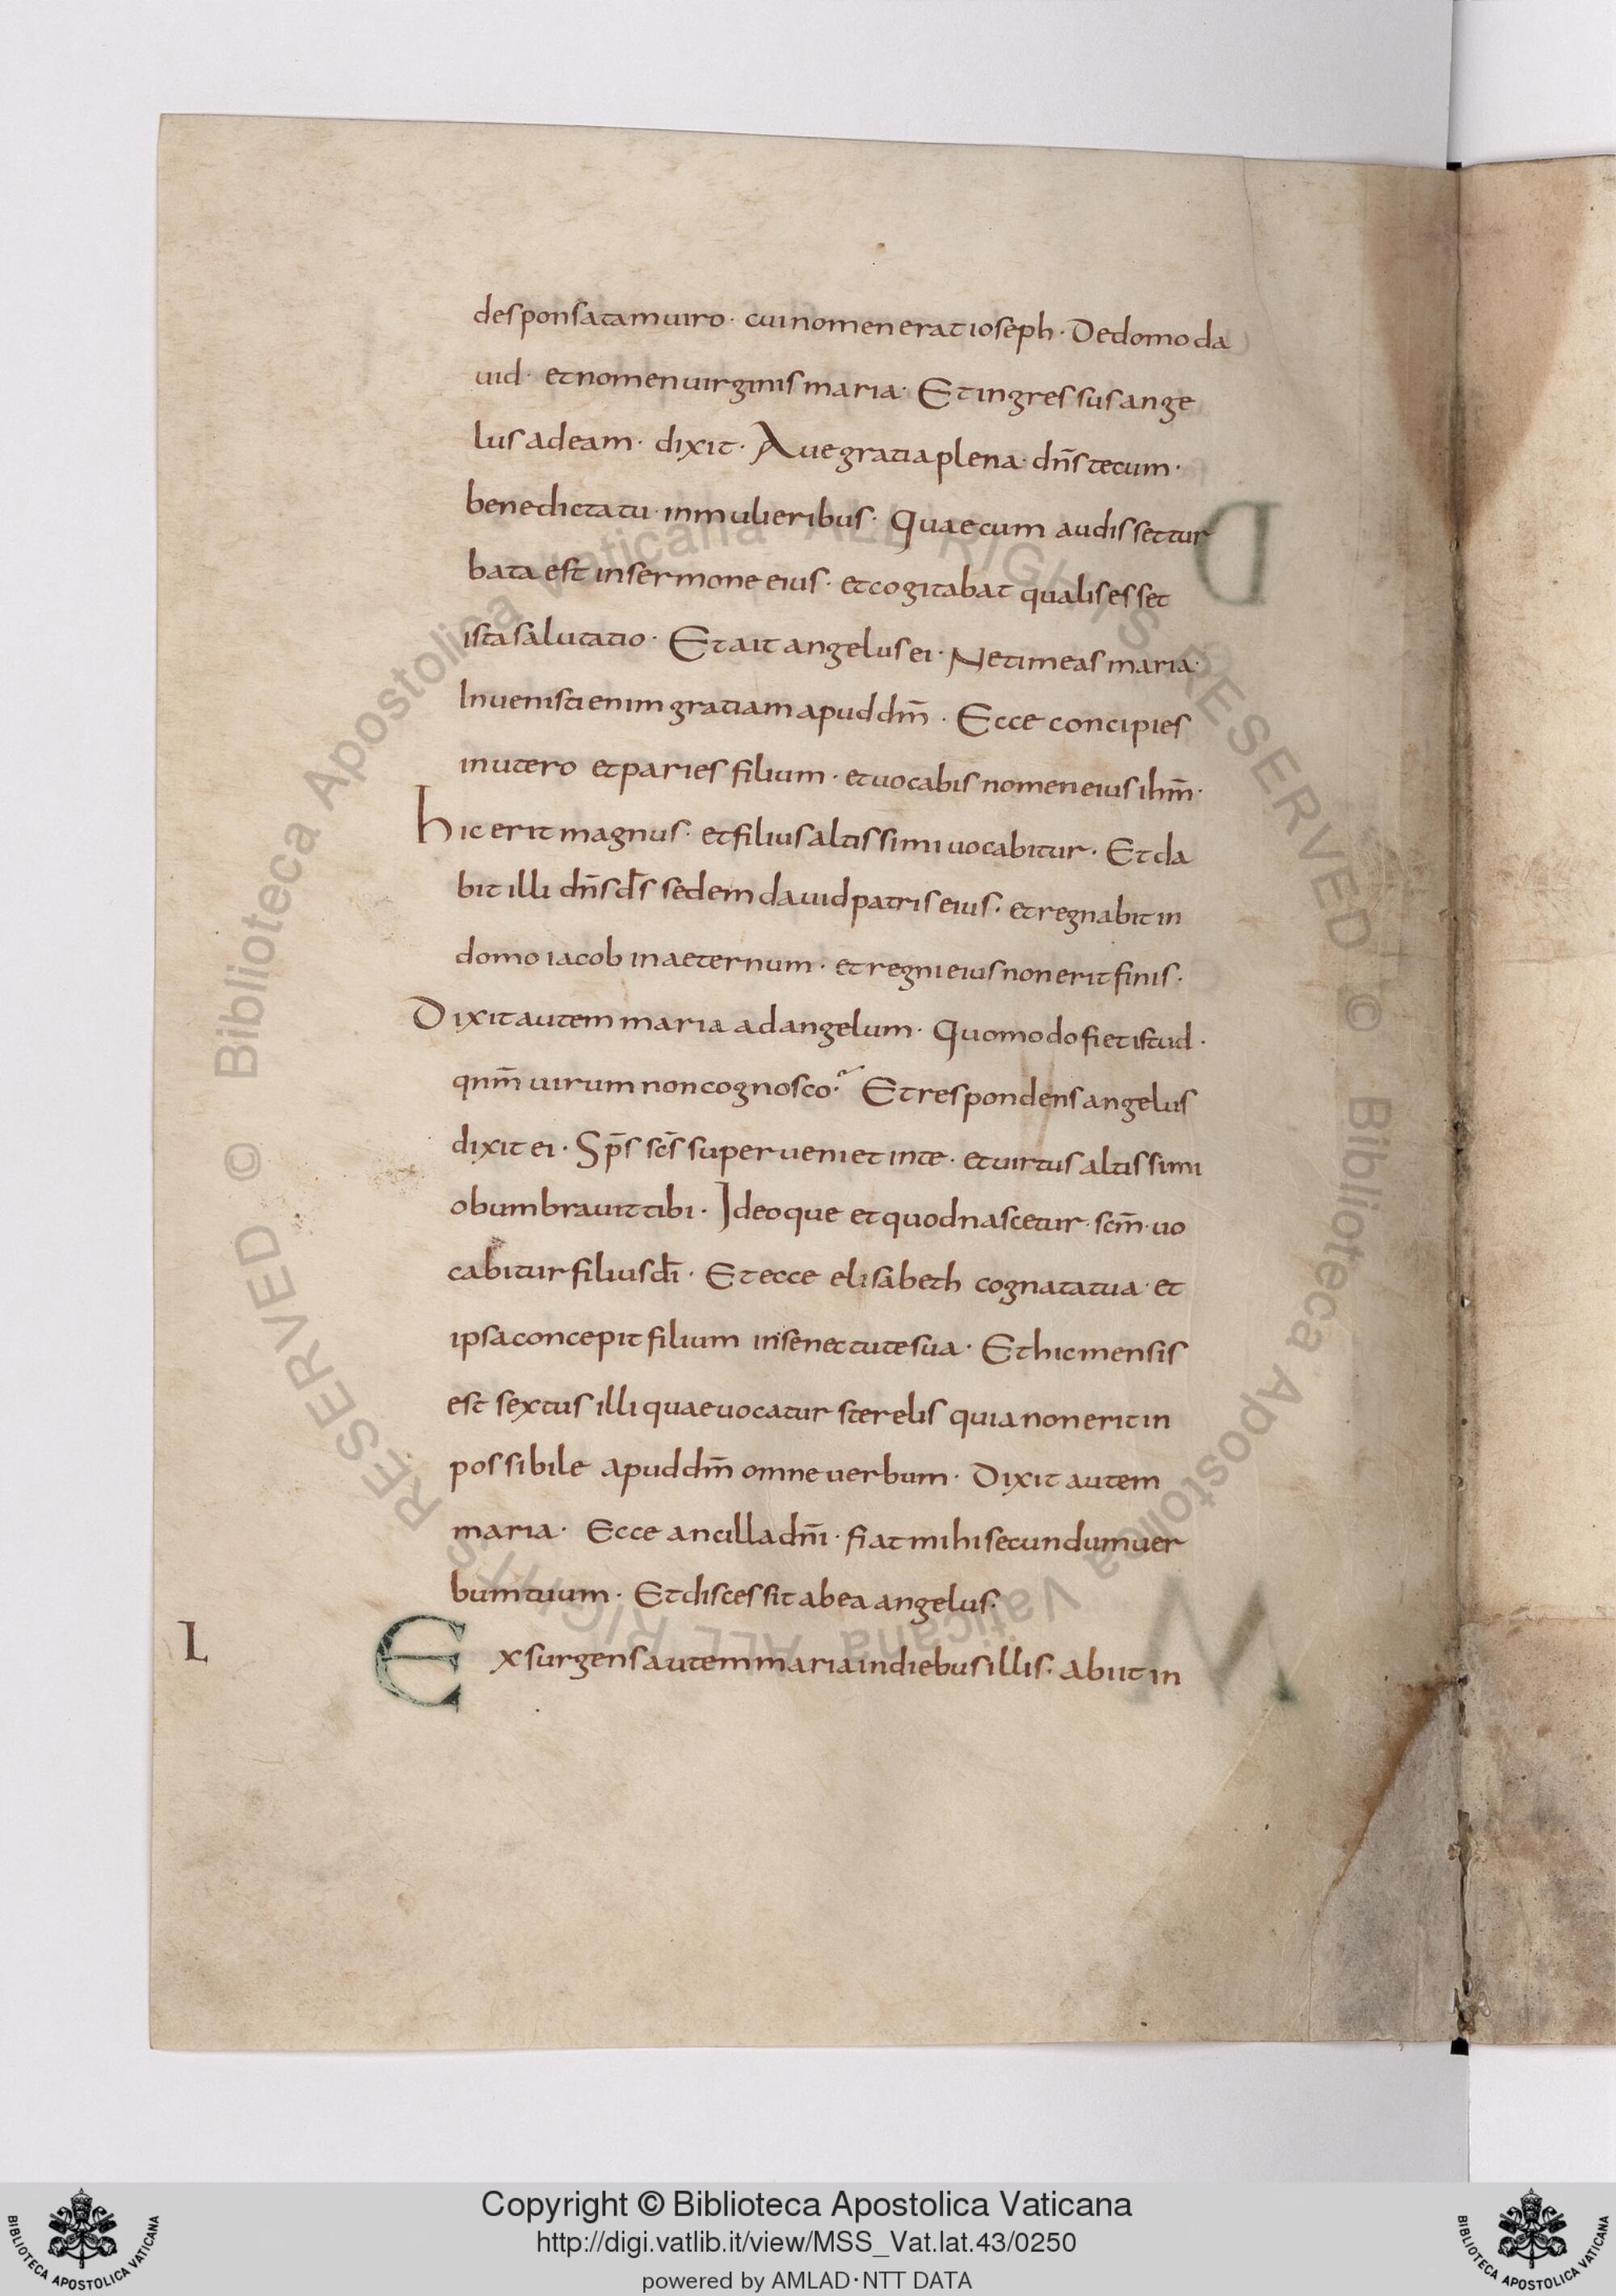 desponsatam uiro · cui nomen erat ioseph · De domo da
uid · et nomen uirginis maria · Et ingressus ange
lus ad eam · dixit · Aue gratia plena · dn̄s tecum ·
benedicta tu · in mulieribus · Quae cum audisset tur
bata est in sermone eius · et cogitabat qualis esset
ista salutatio · Et ait angelus ei · Ne timeas maria ·
Inuenisti enim gratiam apud dm̄ · Ecce concipies
in utero et paries filium · et uocabis nomen eius ihm̄ ·
hic erit magnus · et filius altissimi uocabitur · Et da
bit illi dn̄s ds̄ sedem dauid patris eius · et regnabit in
domo iacob in aeternum · et regni eius non erit finis ·
Dixit autem maria ad angelum · Quomodo fiet istud ·
qnm̄ uirum non cognosco · Et respondens angelus
dixit ei · Sps̄ scs̄ superueniet in te · et uirtus altissimi
obumbrauit tibi · Ideoque et quod nascetur · scm̄ · uo
cabitur filius dī · Et ecce elisabeth cognata tua · et
ipsa concepit filium in senectute sua · Et hic mensis
est sextus illi quae uocatur sterelis quia non erit in
possibile apud dm̄ omne uerbum · Dixit autem
maria · Ecce ancilla dn̄i · fiat mihi secundum uer
bum tuum · Et discessit ab ea angelus ·
L Exsurgens autem maria in diebus illis · abiit in
Copyright © Biblioteca Apostolica Vaticana
http://digi.vatlib.it/view/MSS_Vat.lat.43/0250
powered by AMLAD·NTT DATA
BIBLIOTECA APOSTOLICA VATICANA
BIBLIOTECA APOSTOLICA VATICANA
© Biblioteca Apostolica Vaticana ALL RIGHTS RESERVED © Biblioteca Apostolica Vaticana ALL RIGHTS RESERVED